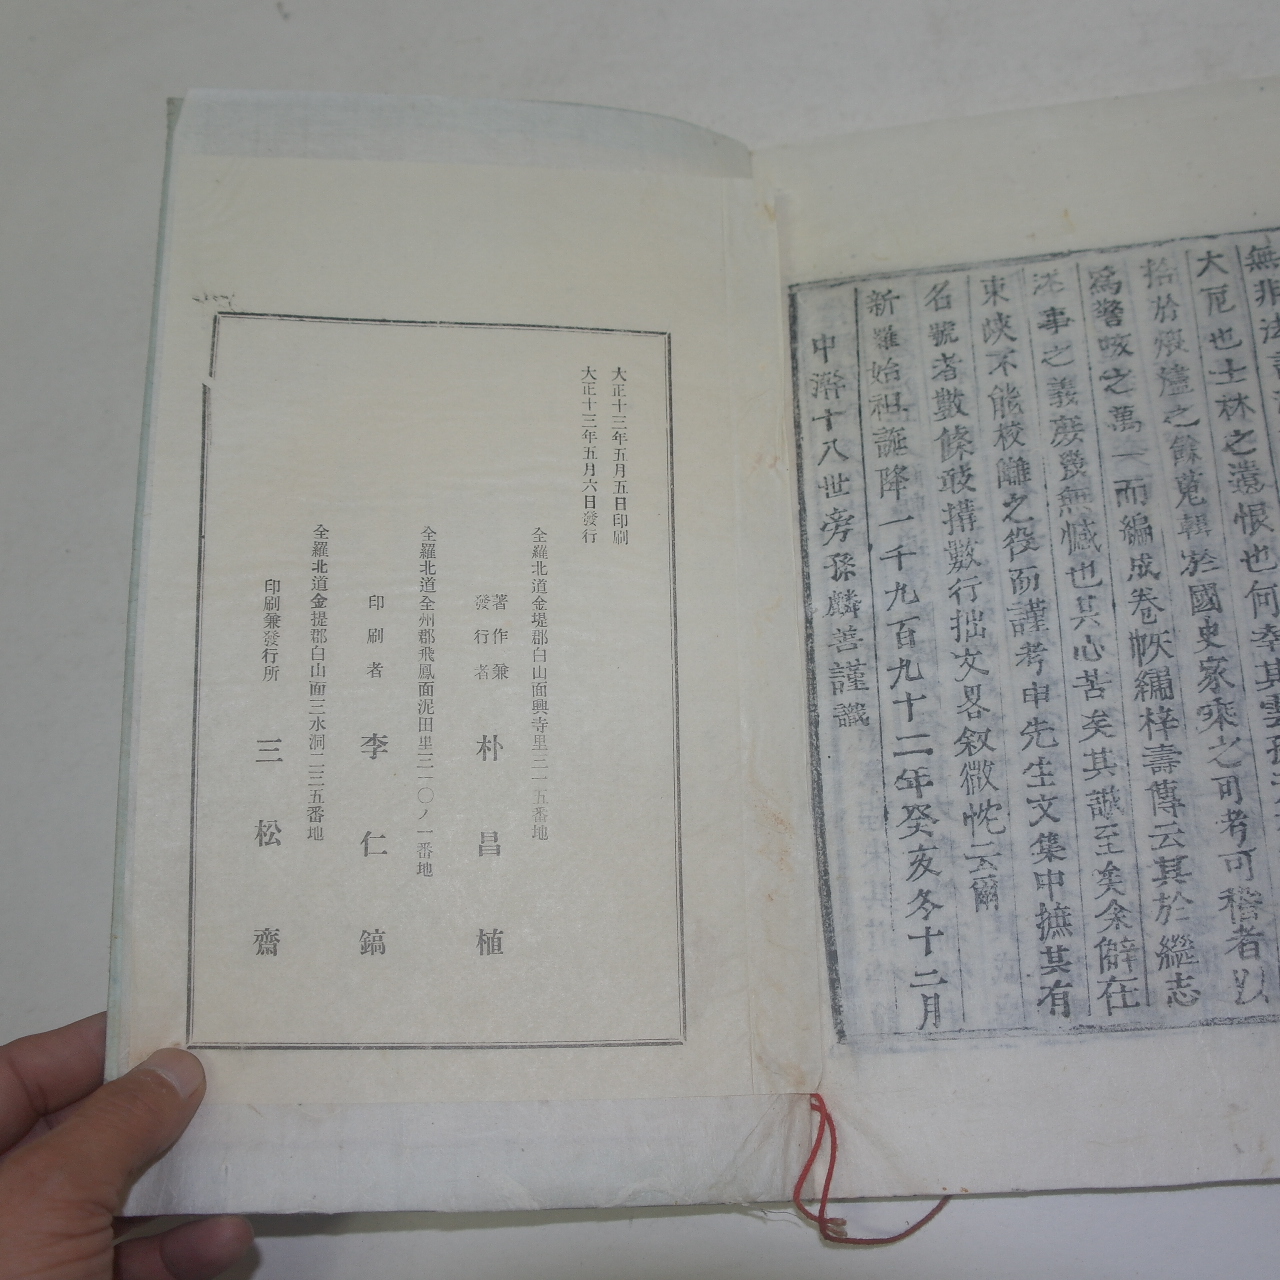 無非法
大戹也士林之遺恨也何幸其雲孫
拾於煨燼之餘蒐輯於國史家乘之可考可稽者以
爲警咳之萬一而編成卷帙繡梓壽傳云其於繼志
述事之義庶幾無憾也其心苦矣其誠至矣余僻在
東峽不能校讎之役而謹考申先生文集中摭其有
名號者數條敢搆數行拙文畧敘微忱云爾
新羅始祖誕降一千九百九十二年癸亥冬十二月
中澣十八世旁孫麟善謹識
大正十三年五月五日印刷
大正十三年五月六日發行
全羅北道金堤郡白山面興寺里三一五番地
著作兼
發行者 朴昌植
全羅北道全州郡飛鳳面泥田里三一〇ノ一番地
印刷者 李仁鎬
全羅北道金提郡白山面三水洞二三五番地
印刷兼發行所 三松齋